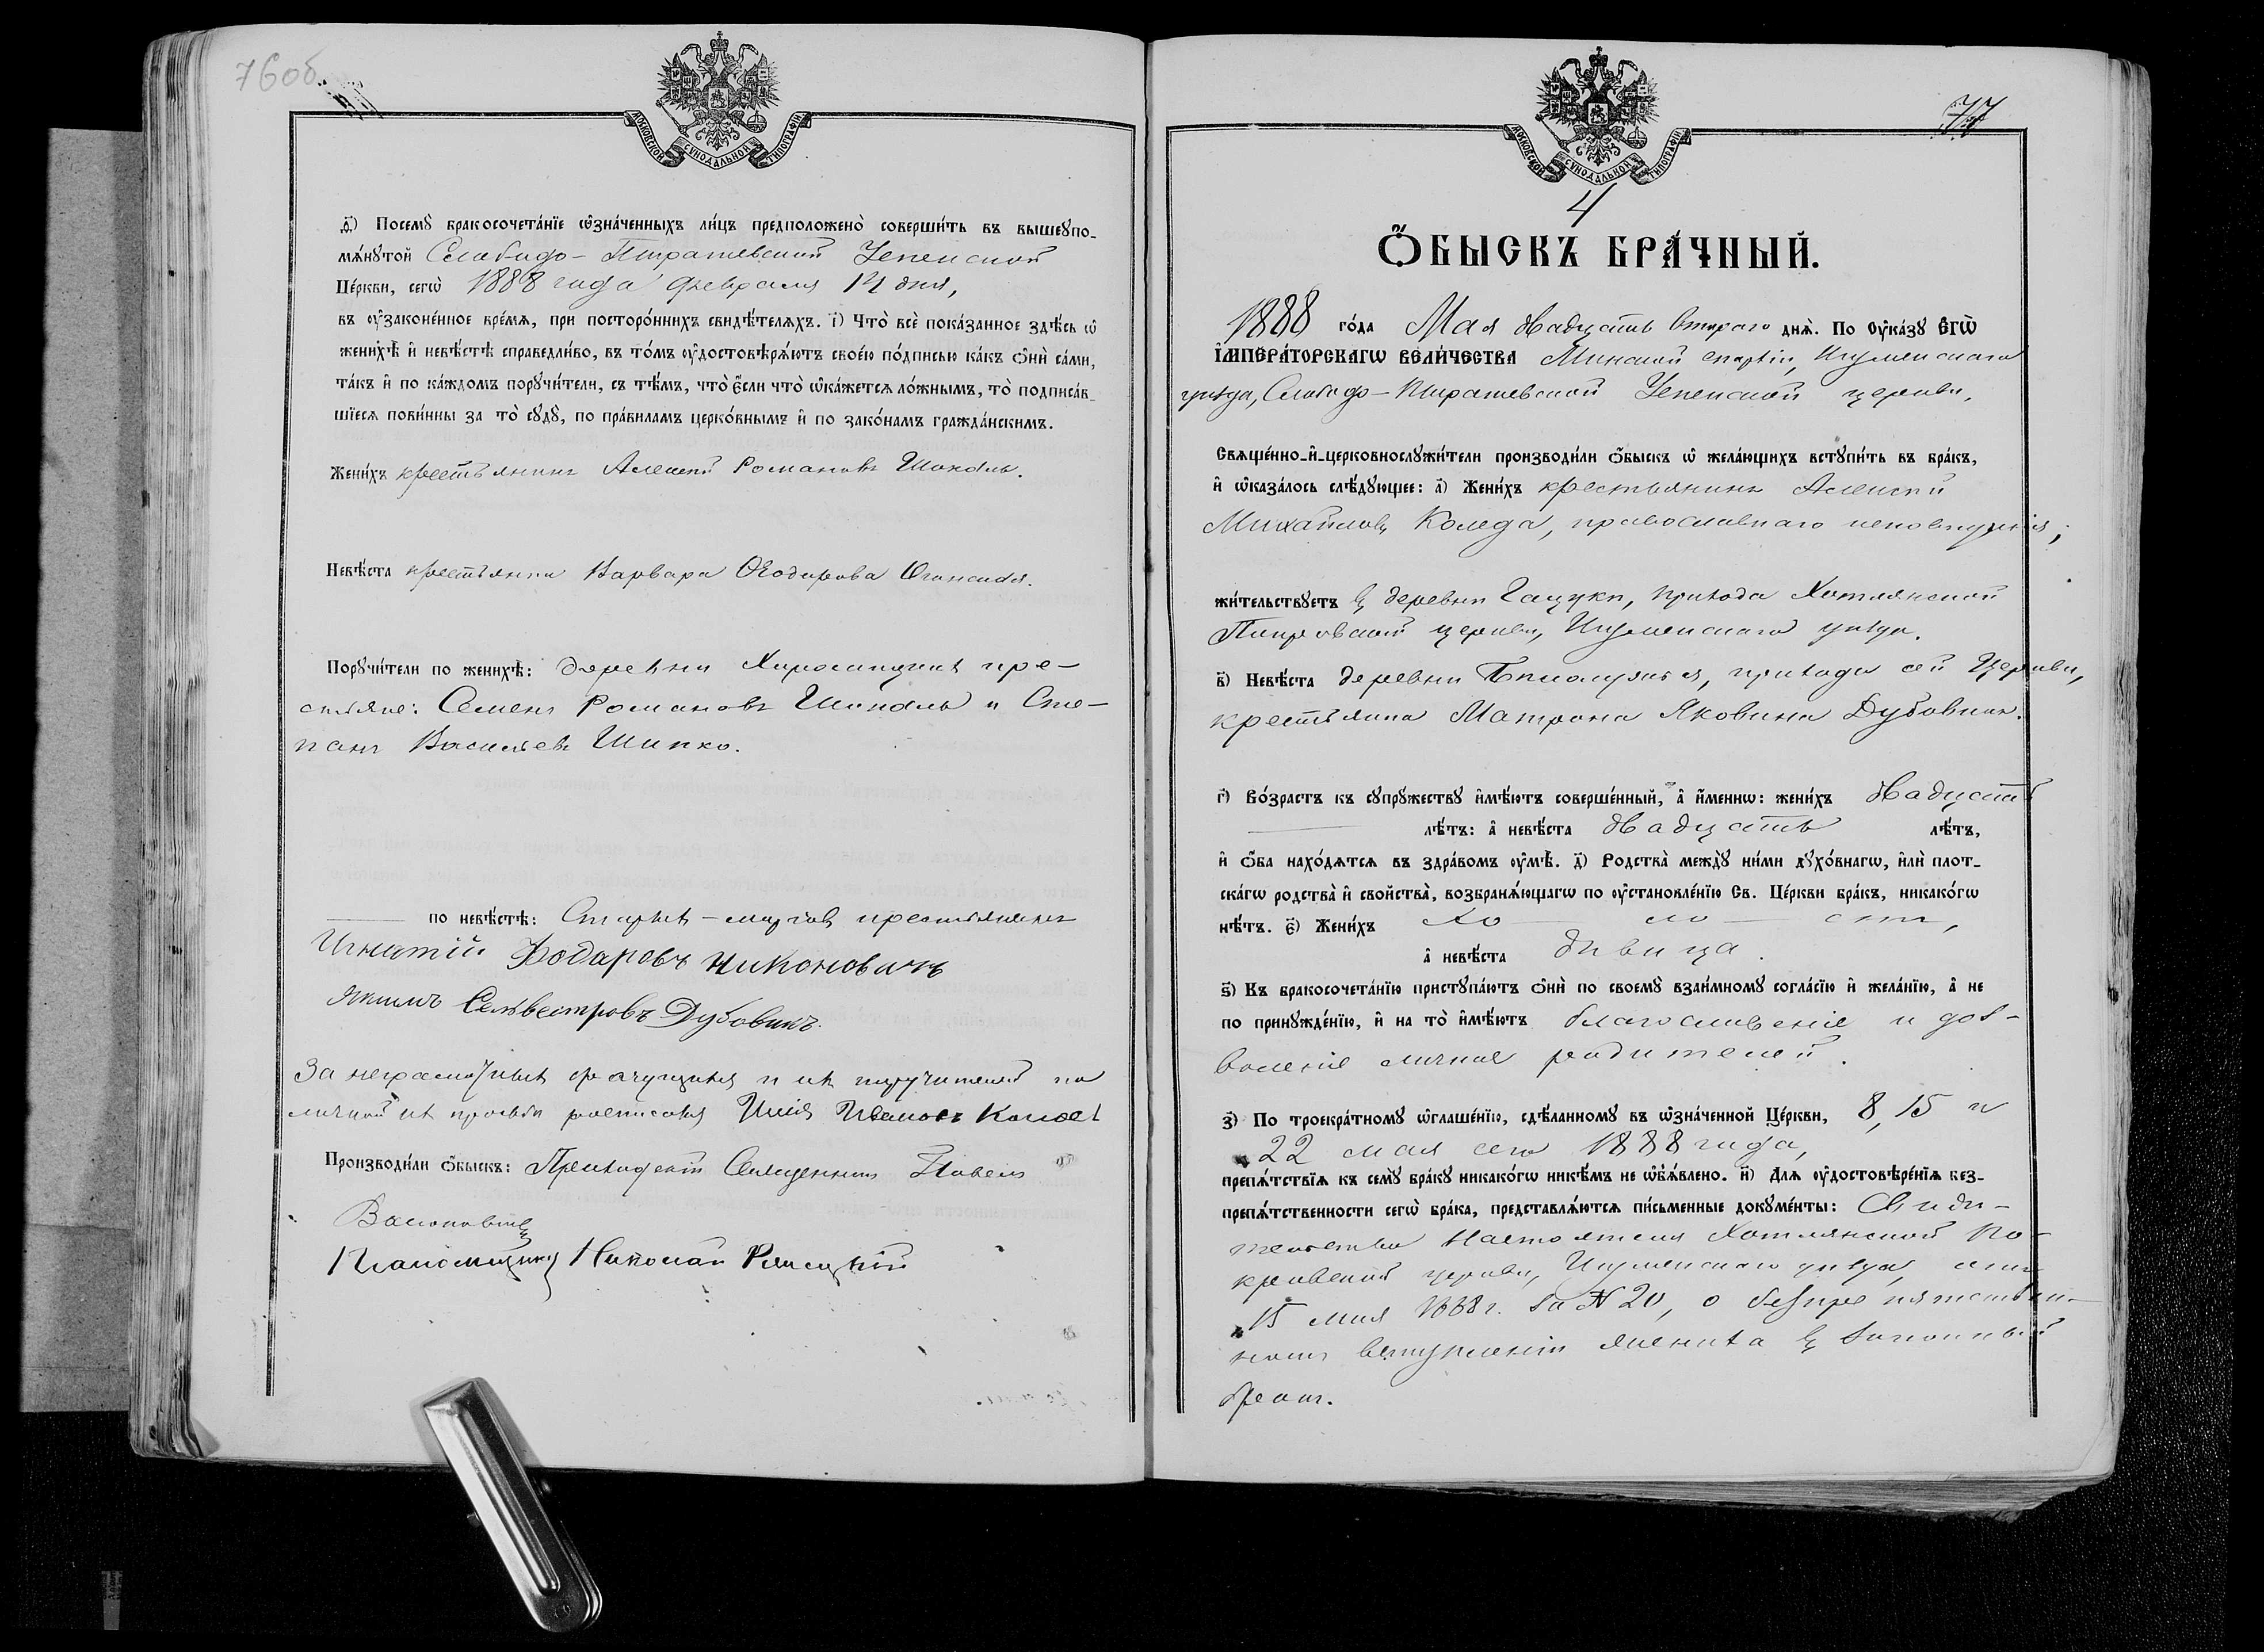 76об.
МОСКОВСКОЙ СУНОДАЛЬНОЙ ТИПОГРАФІИ
д҃) Посемꙋ̀ бракосочета́нїе ѡ҆зна́ченныхъ ли́цъ предположено̀ соверши́ть въ вышеꙋпо-
мѧ́нꙋтой Слободо-Пырашевской Успенской
Це́ркви, сегѡ̀ 1888 года февраля 14 дня,
въ ᲂу҆законе́нное вре́мѧ, при посторо́ннихъ свидѣ́телѧхъ. і҃) Что̀ всѐ пока́занное здѣ́сь ѡ҆
женихѣ̀ и҆ невѣ́стѣ справедли́во, въ то́мъ ᲂу҆достовѣрѧ́ютъ свое́ю по́дписью ка́къ ѻ҆нѝ са́ми,
та́къ и҆ по ка́ждомъ порꙋчи́тели, съ тѣ́мъ, что̀ є҆́сли что̀ ѡ҆ка́жетсѧ ло́жнымъ, то̀ подписа́в-
шїесѧ пови́нны за то̀ сꙋдꙋ̀, по пра́виламъ церко́внымъ и҆ по зако́намъ гражда́нскимъ.
Жени́хъ крестьянинъ Алексѣй Романовъ Шоколь.
Невѣ́ста крестьянка Варвара Ѳеодорова
Порꙋчи́тели по женихѣ̀: деревни кре-
стьяне: Семенъ Романовъ Шоколь и Сте-
панъ Васильевъ Шипко.
по невѣ́стѣ: крестьянинъ
Игнатій Ѳодаровъ Никоновичъ
Якимъ Селвестровъ Дубовикъ.
За неграмотныхъ брачущихся и ихъ поручителей по
личной ихъ просьбѣ росписался Илія Ивановъ
Производи́ли ѻ҆́быскъ: Приходскій Священникъ Павелъ
Псаломщикъ Николай
77
МОСКОВСКОЙ СУНОДАЛЬНОЙ ТИПОГРАФІИ
4
Ѻ҆́БЫСКЪ БРА́ЧНЫЙ.
1888 го́да Мая двадцать втораго днѧ̀. По Ѹ҆ка́зꙋ Є҆гѡ̀
І҆мпера́торскагѡ Вели́чества Минской епархіи, Игуменскаго
уѣзда, Слободо-Пырашевской Успенской церкви,
Свѧще́нно-и҆-церковнослꙋжи́тели производи́ли ѻ҆́быскъ ѡ҆ жела́ющихъ встꙋпи́ть въ бра́къ,
и҆ ѡ҆каза́лось слѣ́дꙋющее: а҃) Жени́хъ крестьянинъ Алексѣй
Михайловъ Коледа, православнаго исповѣданія,
жи́тельствꙋетъ въ деревнѣ Гацуки, прихода Хотлянской
Покровской церкви, Игуменскаго уѣзда.
в҃) Невѣ́ста деревни прихода сей Церкви,
крестьянка Матрона Яковина Дубовикъ.
г҃) Во́зрастъ къ сꙋпрꙋ́жествꙋ и҆мѣ́ютъ соверше́нный, а҆ и҆́меннѡ: жени́хъ двадцать
лѣ́тъ: а҆ невѣ́ста двадцать лѣ́тъ,
и҆ ѻ҆́ба нахо́дѧтсѧ въ здра́вомъ ᲂу҆мѣ̀. д҃) Родства̀ междꙋ̀ ни́ми дꙋхо́внагѡ, и҆лѝ плот-
ска́гѡ родства̀ и҆ свойства̀, возбранѧ́ющагѡ по ᲂу҆становле́нїю Св. Це́ркви бра́къ, никако́гѡ
нѣ́тъ. є҃) Жени́хъ хо — ло — стъ,
а҆ невѣ́ста дѣвица.
ѕ҃) Къ бракосочета́нїю пристꙋпа́ютъ ѻ҆нѝ по своемꙋ̀ взаи́мномꙋ согла́сїю и҆ жела́нїю, а҆ не
по принꙋжде́нїю, и҆ на то̀ и҆мѣ́ютъ благословеніе и доз-
воленіе личное родителей.
з҃) По троекра́тномꙋ ѡ҆глаше́нїю, сдѣ́ланномꙋ въ ѡ҆зна́ченной Це́ркви, 8, 15 и
22 мая сего 1888 года,
препѧ́тствїѧ къ семꙋ̀ бра́кꙋ никако́гѡ никѣ́мъ не ѡ҆бъѧ́влено. и҃) Длѧ ᲂу҆достовѣре́нїѧ без-
препѧ́тственности сегѡ̀ бра́ка, представлѧ́ютсѧ пи́сьменные докꙋме́нты: Свидѣ-
тельство Настоятеля Хотлянской По-
кровской церкви, Игуменскаго уѣзда, отъ
15 мая 1888 г. за № 20, о безпрепятствен-
номъ вступленіи жениха въ законный
бракъ.